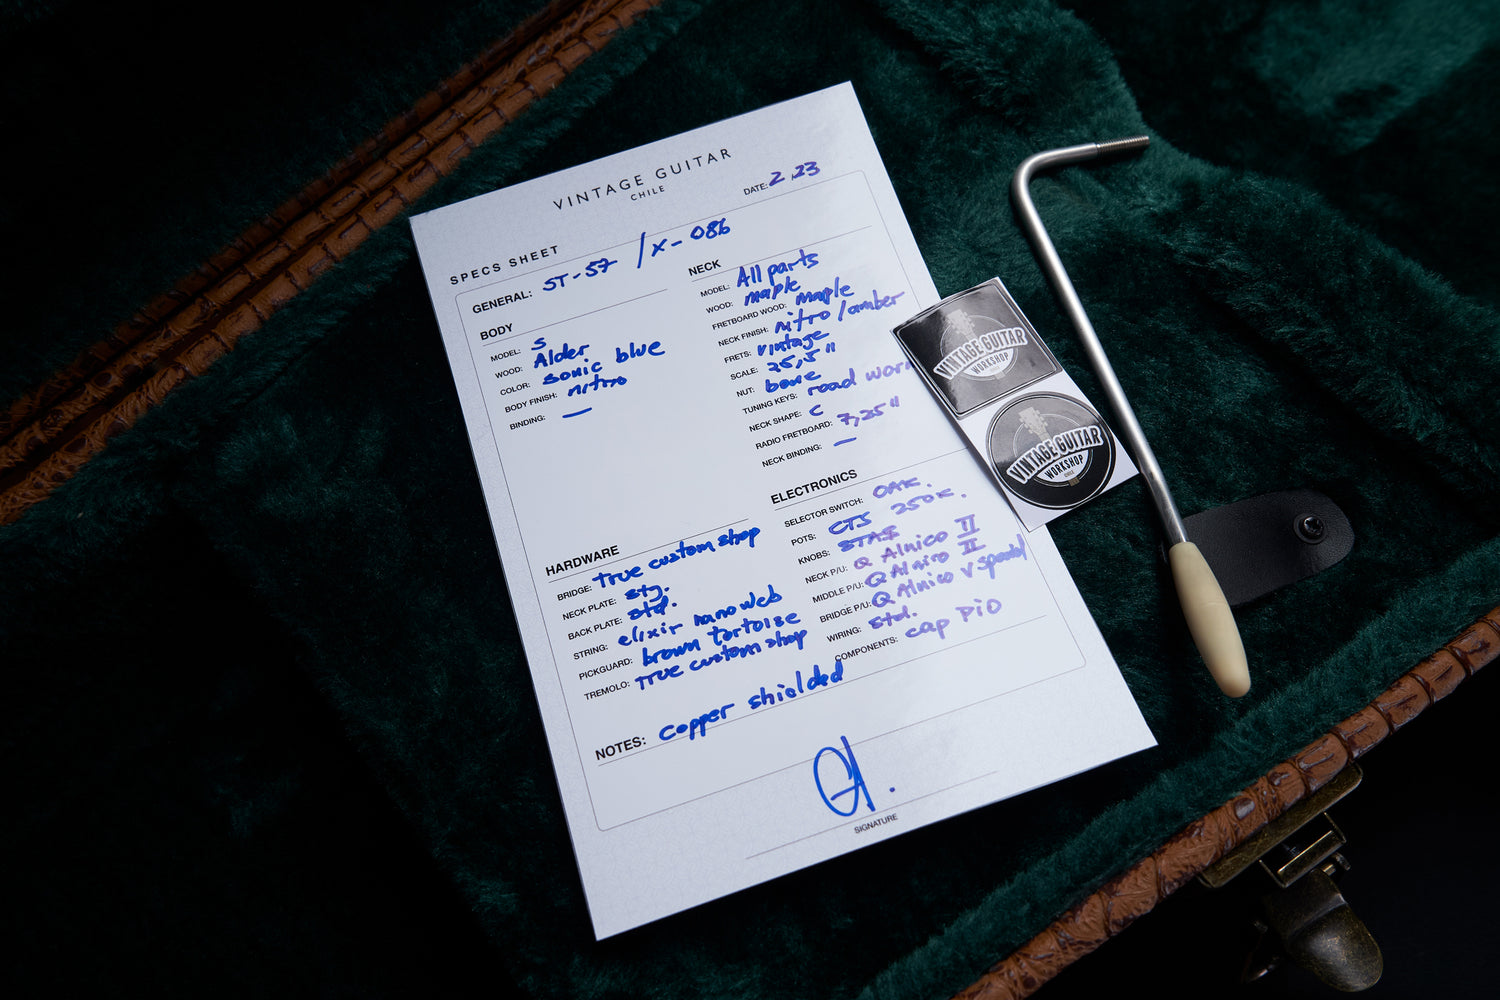 VINTAGE GUITAR
CHILE
DATE: 2 /23
SPECS SHEET
GENERAL: ST-57 / X-086
BODY
MODEL: S
WOOD: Alder
COLOR: sonic blue
BODY FINISH: nitro
BINDING: —
NECK
MODEL: All parts
WOOD: maple
FRETBOARD WOOD: maple
NECK FINISH: nitro / amber
FRETS: vintage
SCALE: 25,5"
NUT: bone
TUNING KEYS: road worn
NECK SHAPE: C
RADIO FRETBOARD: 7,25"
NECK BINDING: —
HARDWARE
BRIDGE: true custom shop
NECK PLATE: std.
BACK PLATE: std.
STRING: elixir nanoweb
PICKGUARD: brown tortoise
TREMOLO: true custom shop
ELECTRONICS
SELECTOR SWITCH: OAK.
POTS: CTS 250K.
KNOBS:
NECK P/U: Q Alnico II
MIDDLE P/U: Q Alnico II
BRIDGE P/U: Q Alnico V special
WIRING: std.
COMPONENTS: cap PiO
NOTES: copper shielded
SIGNATURE
VINTAGE GUITAR
WORKSHOP
CHILE
VINTAGE GUITAR
WORKSHOP
CHILE